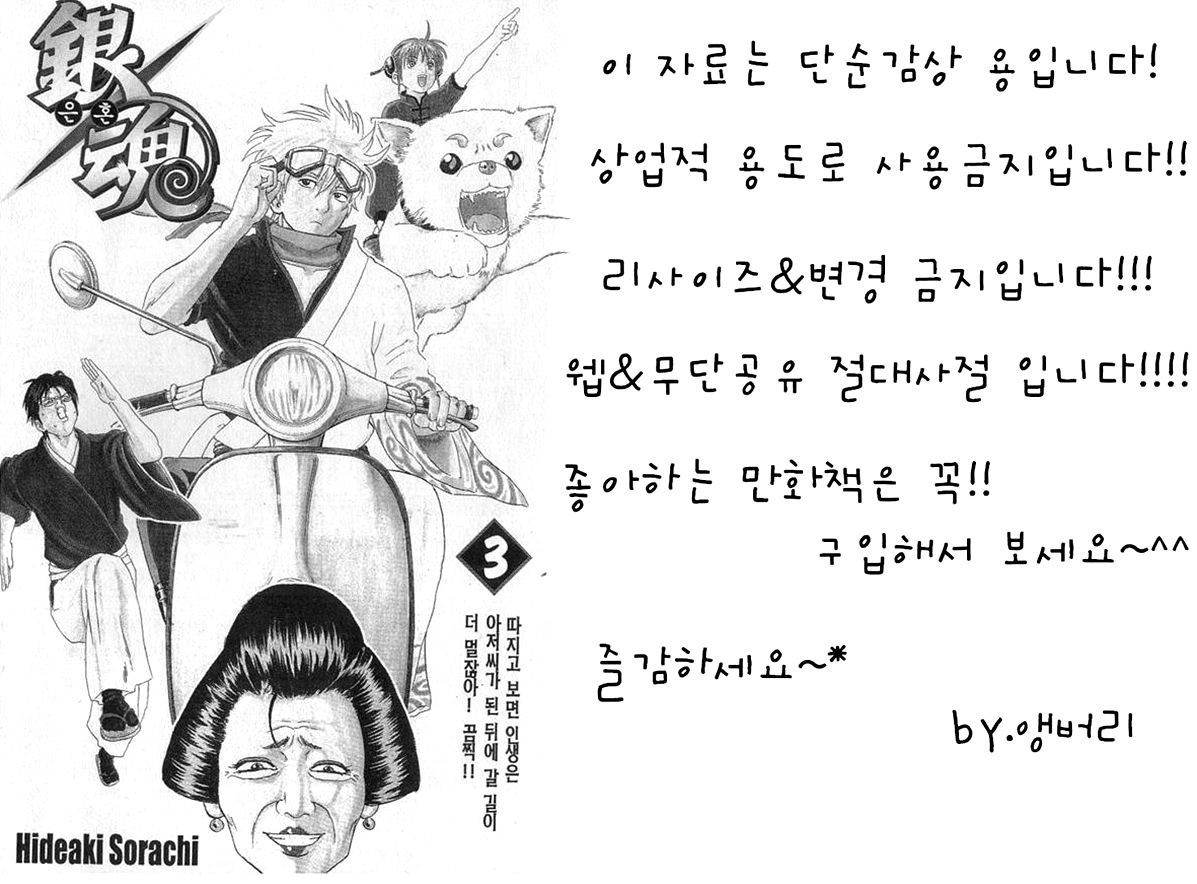 銀魂
은혼
3
따지고 보면 인생은
아저씨가 된 뒤에 갈 길이
더 멀잖아! 끔찍!!
Hideaki Sorachi
이 자료는 단순감상 용입니다!
상업적 용도로 사용금지입니다!!
리사이즈&변경 금지입니다!!!
웹&무단공유 절대사절 입니다!!!!
좋아하는 만화책은 꼭!!
구입해서 보세요~^^
즐감하세요~*
by.앵버리